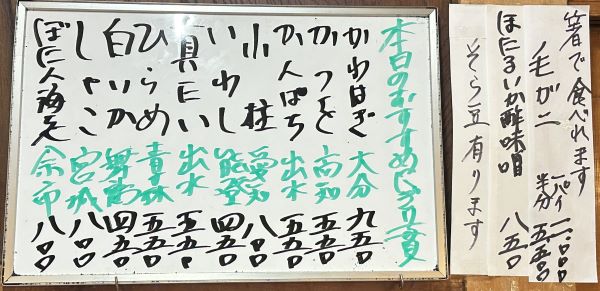 箸で食べれます
毛がニ 一パイ
半分 五五〇
ほたるいか酢味噌 八五〇
そら豆有ります
本日のおすすめ
かわはぎ 大分 九五〇
かつを 高知 五五〇
かんぱち 出水 五五〇
小柱 愛知 八〇〇
いわし 能登 四五〇
真だい 出水 五五〇
ひらめ 青森 五五〇
白いか 四五〇
しゃこ 宮城 八〇〇
ぼたん海老 余市 八〇〇